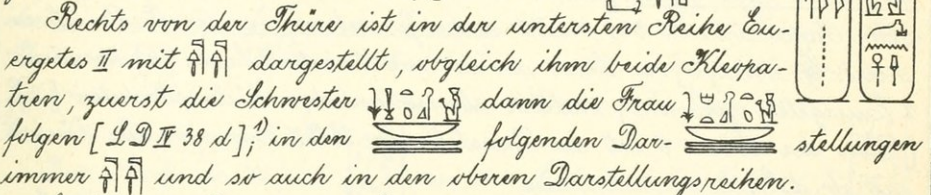 Rechts von der Thüre ist in der untersten Reihe Eu-
ergetes II mit 𓊹𓊹 dargestellt, obgleich ihm beide Kleopa-
tren, zuerst die Schwester dann die Frau
folgen [L D IV 38 d];¹) in den folgenden Dar- stellungen
immer 𓊹𓊹 und so auch in den oberen Darstellungsreihen.